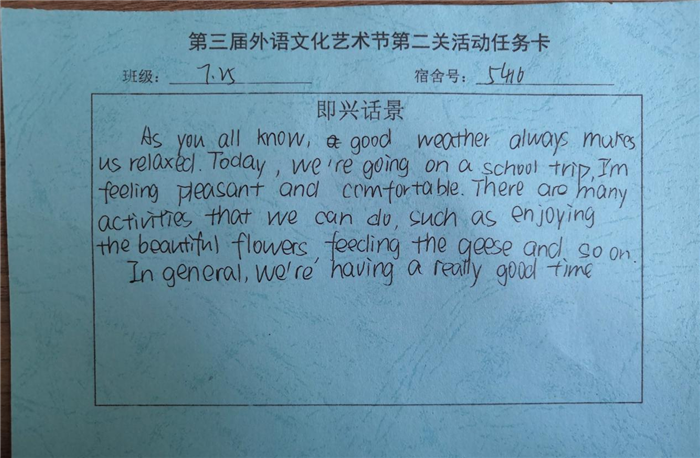 第三届外语文化艺术节第二关活动任务卡
班级: 7.25 宿舍号: 5416
即兴话景
As you all know, good weather always makes
us relaxed. Today, we're going on a school trip, I'm
feeling pleasant and comfortable. There are many
activities that we can do, such as enjoying
the beautiful flowers, feeding the geese and so on.
In general, we're having a really good time